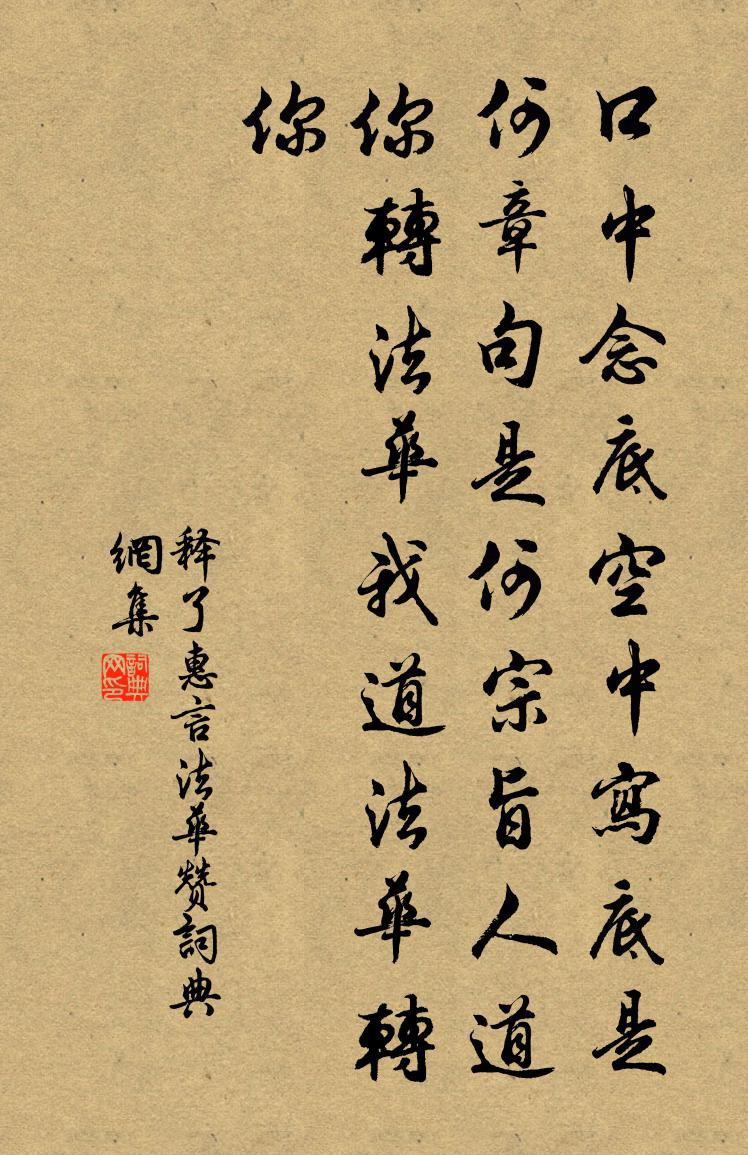 口中念底空中寫底是
何章句是何宗旨人道
你轉法華我道法華轉
你
释了惠言法華赞詞典
網集
詞典
网印